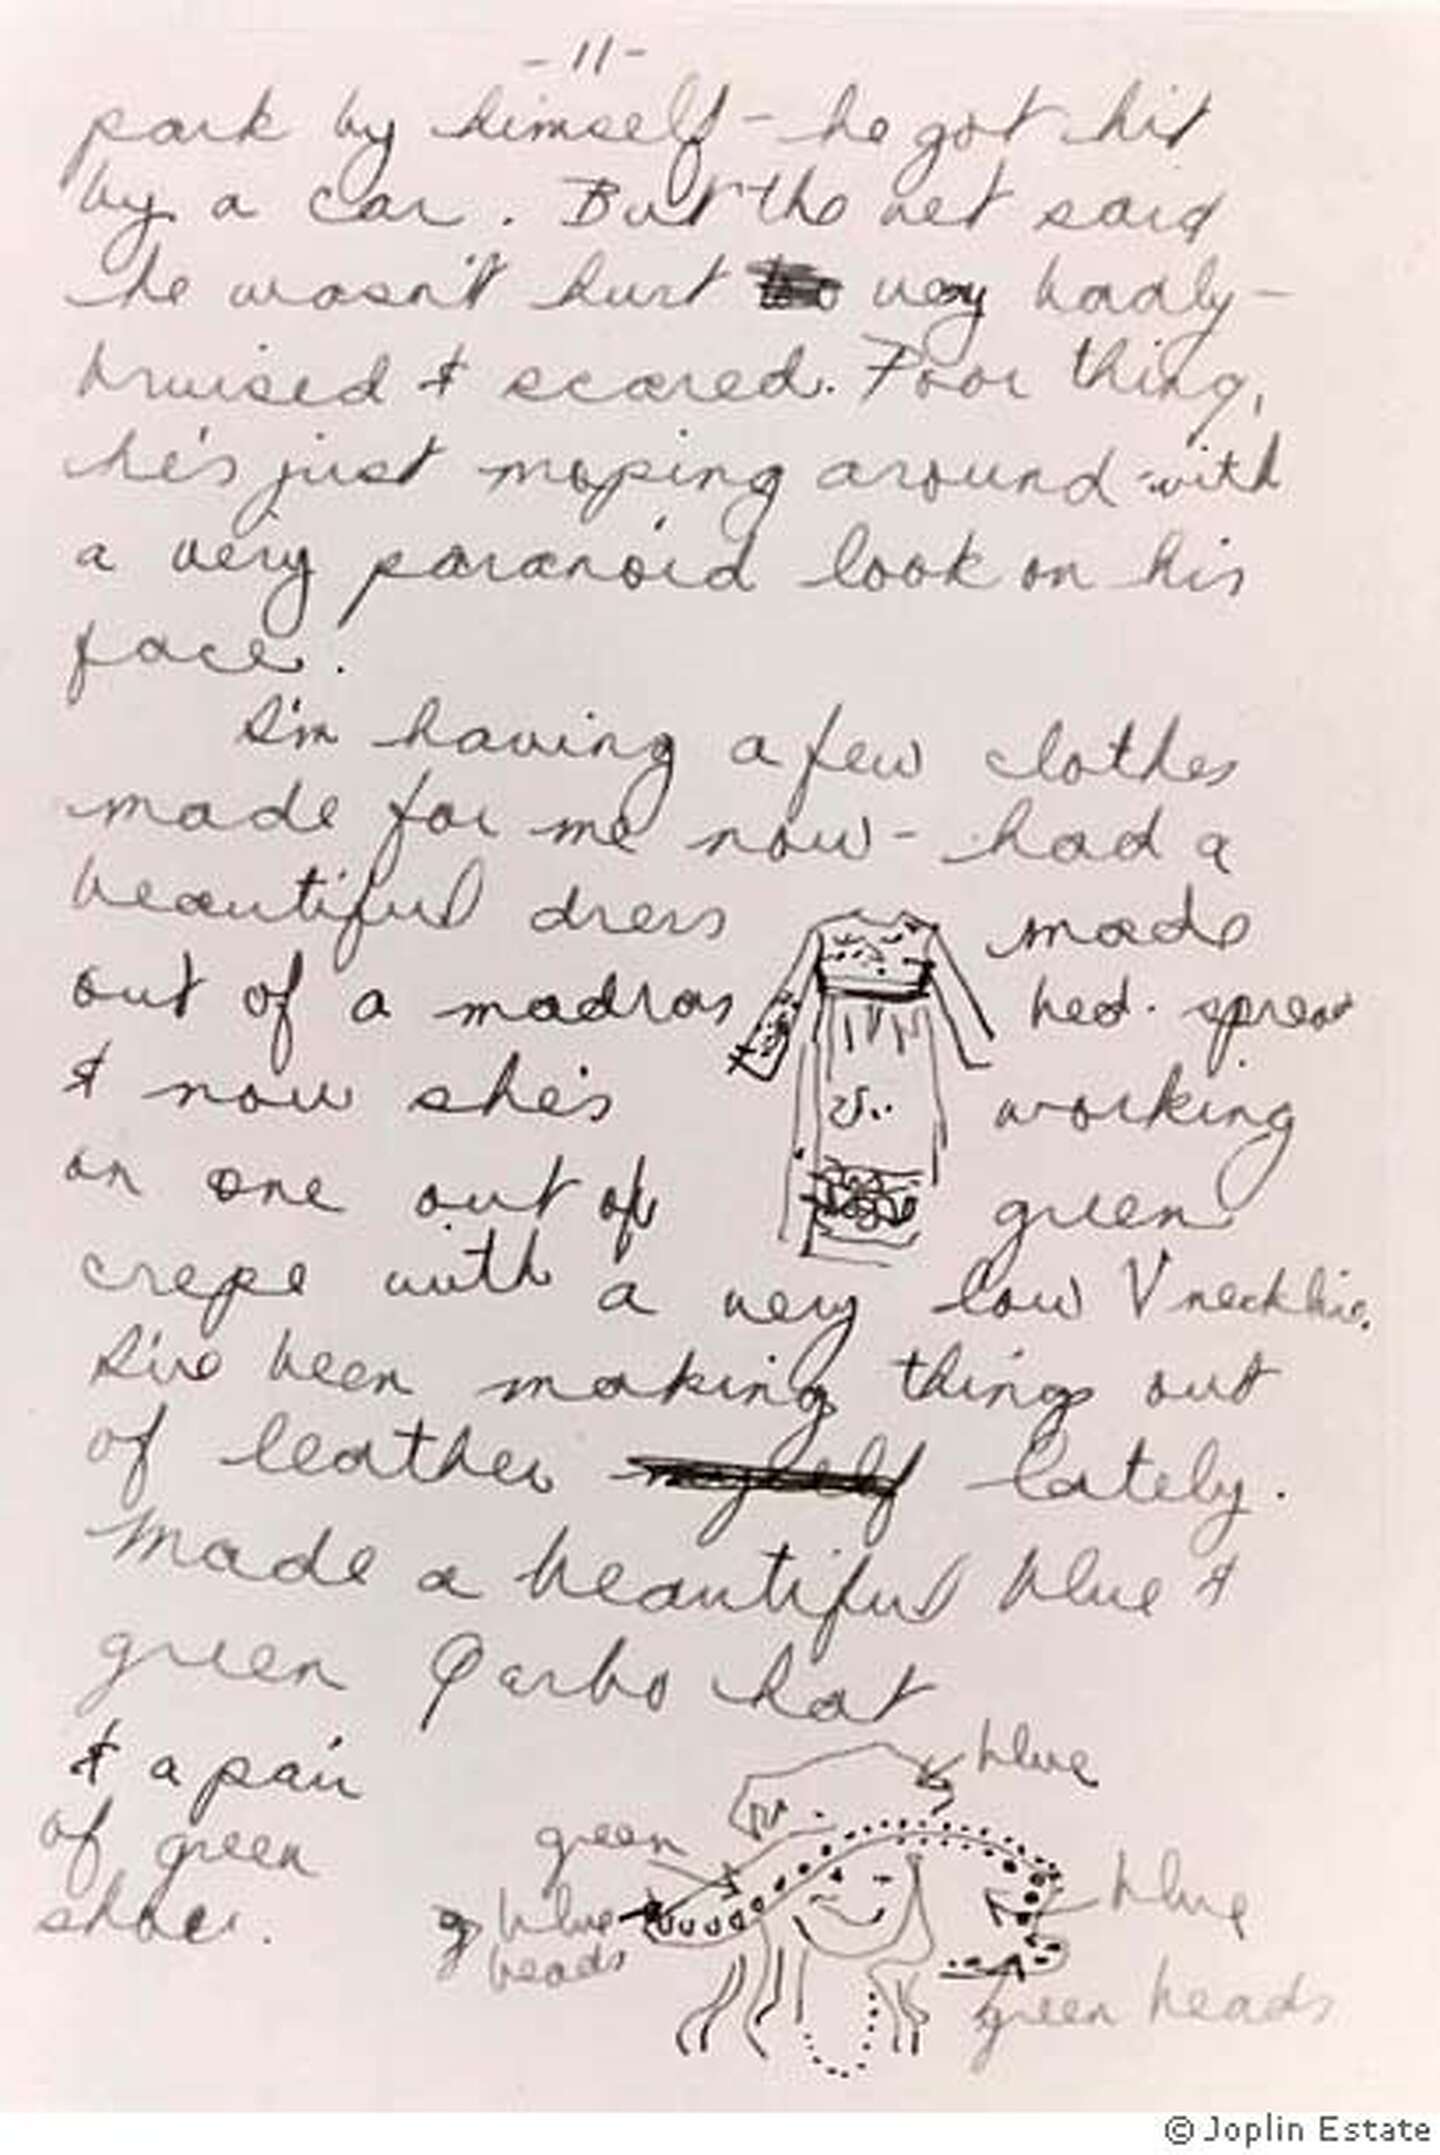 - 11 -
park by himself - he got hit
by a car. But the vet said
he wasn't hurt very badly -
bruised & scared. Poor thing,
he's just moping around with
a very paranoid look on his
face.
I'm having a few clothes
made for me now - had a
beautiful dress made
out of a madras bed spread
& now she's working
on one out of green
crepe with a very low V neckline.
I've been making things out
of leather myself lately.
Made a beautiful blue &
green Garbo hat
& a pair
of green
shoes.
blue
green
blue
blue
beads
green beads
© Joplin Estate